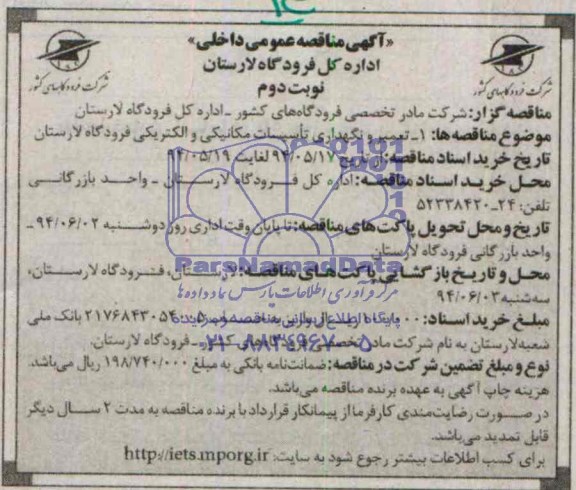 «آگهی مناقصه عمومی داخلی»
اداره کل فرودگاه لارستان
نوبت دوم
شرکت فرودگاههای کشور
شرکت فرودگاههای کشور
مناقصه گزار: شرکت مادر تخصصی فرودگاه‌های کشور - اداره کل فرودگاه لارستان
موضوع مناقصه‌ها: ۱- تعمیر و نگهداری تأسیسات مکانیکی و الکتریکی فرودگاه لارستان
تاریخ خرید اسناد مناقصه: از تاریخ ۹۴/۰۵/۱۷ لغایت ۹۴/۰۵/۱۹
محل خرید اسناد مناقصه: اداره کل فرودگاه لارستان - واحد بازرگانی
تلفن: ۲۴-۵۲۳۳۸۴۲۰
تاریخ و محل تحویل پاکت‌های مناقصه: تا پایان وقت اداری روز دوشنبه ۹۴/۰۶/۰۲ -
واحد بازرگانی فرودگاه لارستان
ParsNamadData
محل و تاریخ بازگشایی پاکت‌های مناقصه: لارستان، فرودگاه لارستان،
سه‌شنبه ۹۴/۰۶/۰۳
مرکز فرآوری اطلاعات پارس نماد داده ها
مبلغ خرید اسناد: ریال واریز به حساب ۲۱۷۶۸۴۳۰۵۴۰۰۵ بانک ملی
پایگاه اطلاع رسانی مناقصه و مزایده
شعبه لارستان به نام شرکت مادر تخصصی فرودگاههای کشور - فرودگاه لارستان.
۰۲۱-۸۸۳۴۹۶۷۰-۵
نوع و مبلغ تضمین شرکت در مناقصه: ضمانت‌نامه بانکی به مبلغ ۱۹۸/۷۴۰/۰۰۰ ریال می‌باشد.
هزینه چاپ آگهی به عهده برنده مناقصه می‌باشد.
در صورت رضایت‌مندی کارفرما از پیمانکار قرارداد با برنده مناقصه به مدت ۲ سال دیگر
قابل تمدید می‌باشد.
برای کسب اطلاعات بیشتر رجوع شود به سایت: http://iets.mporg.ir